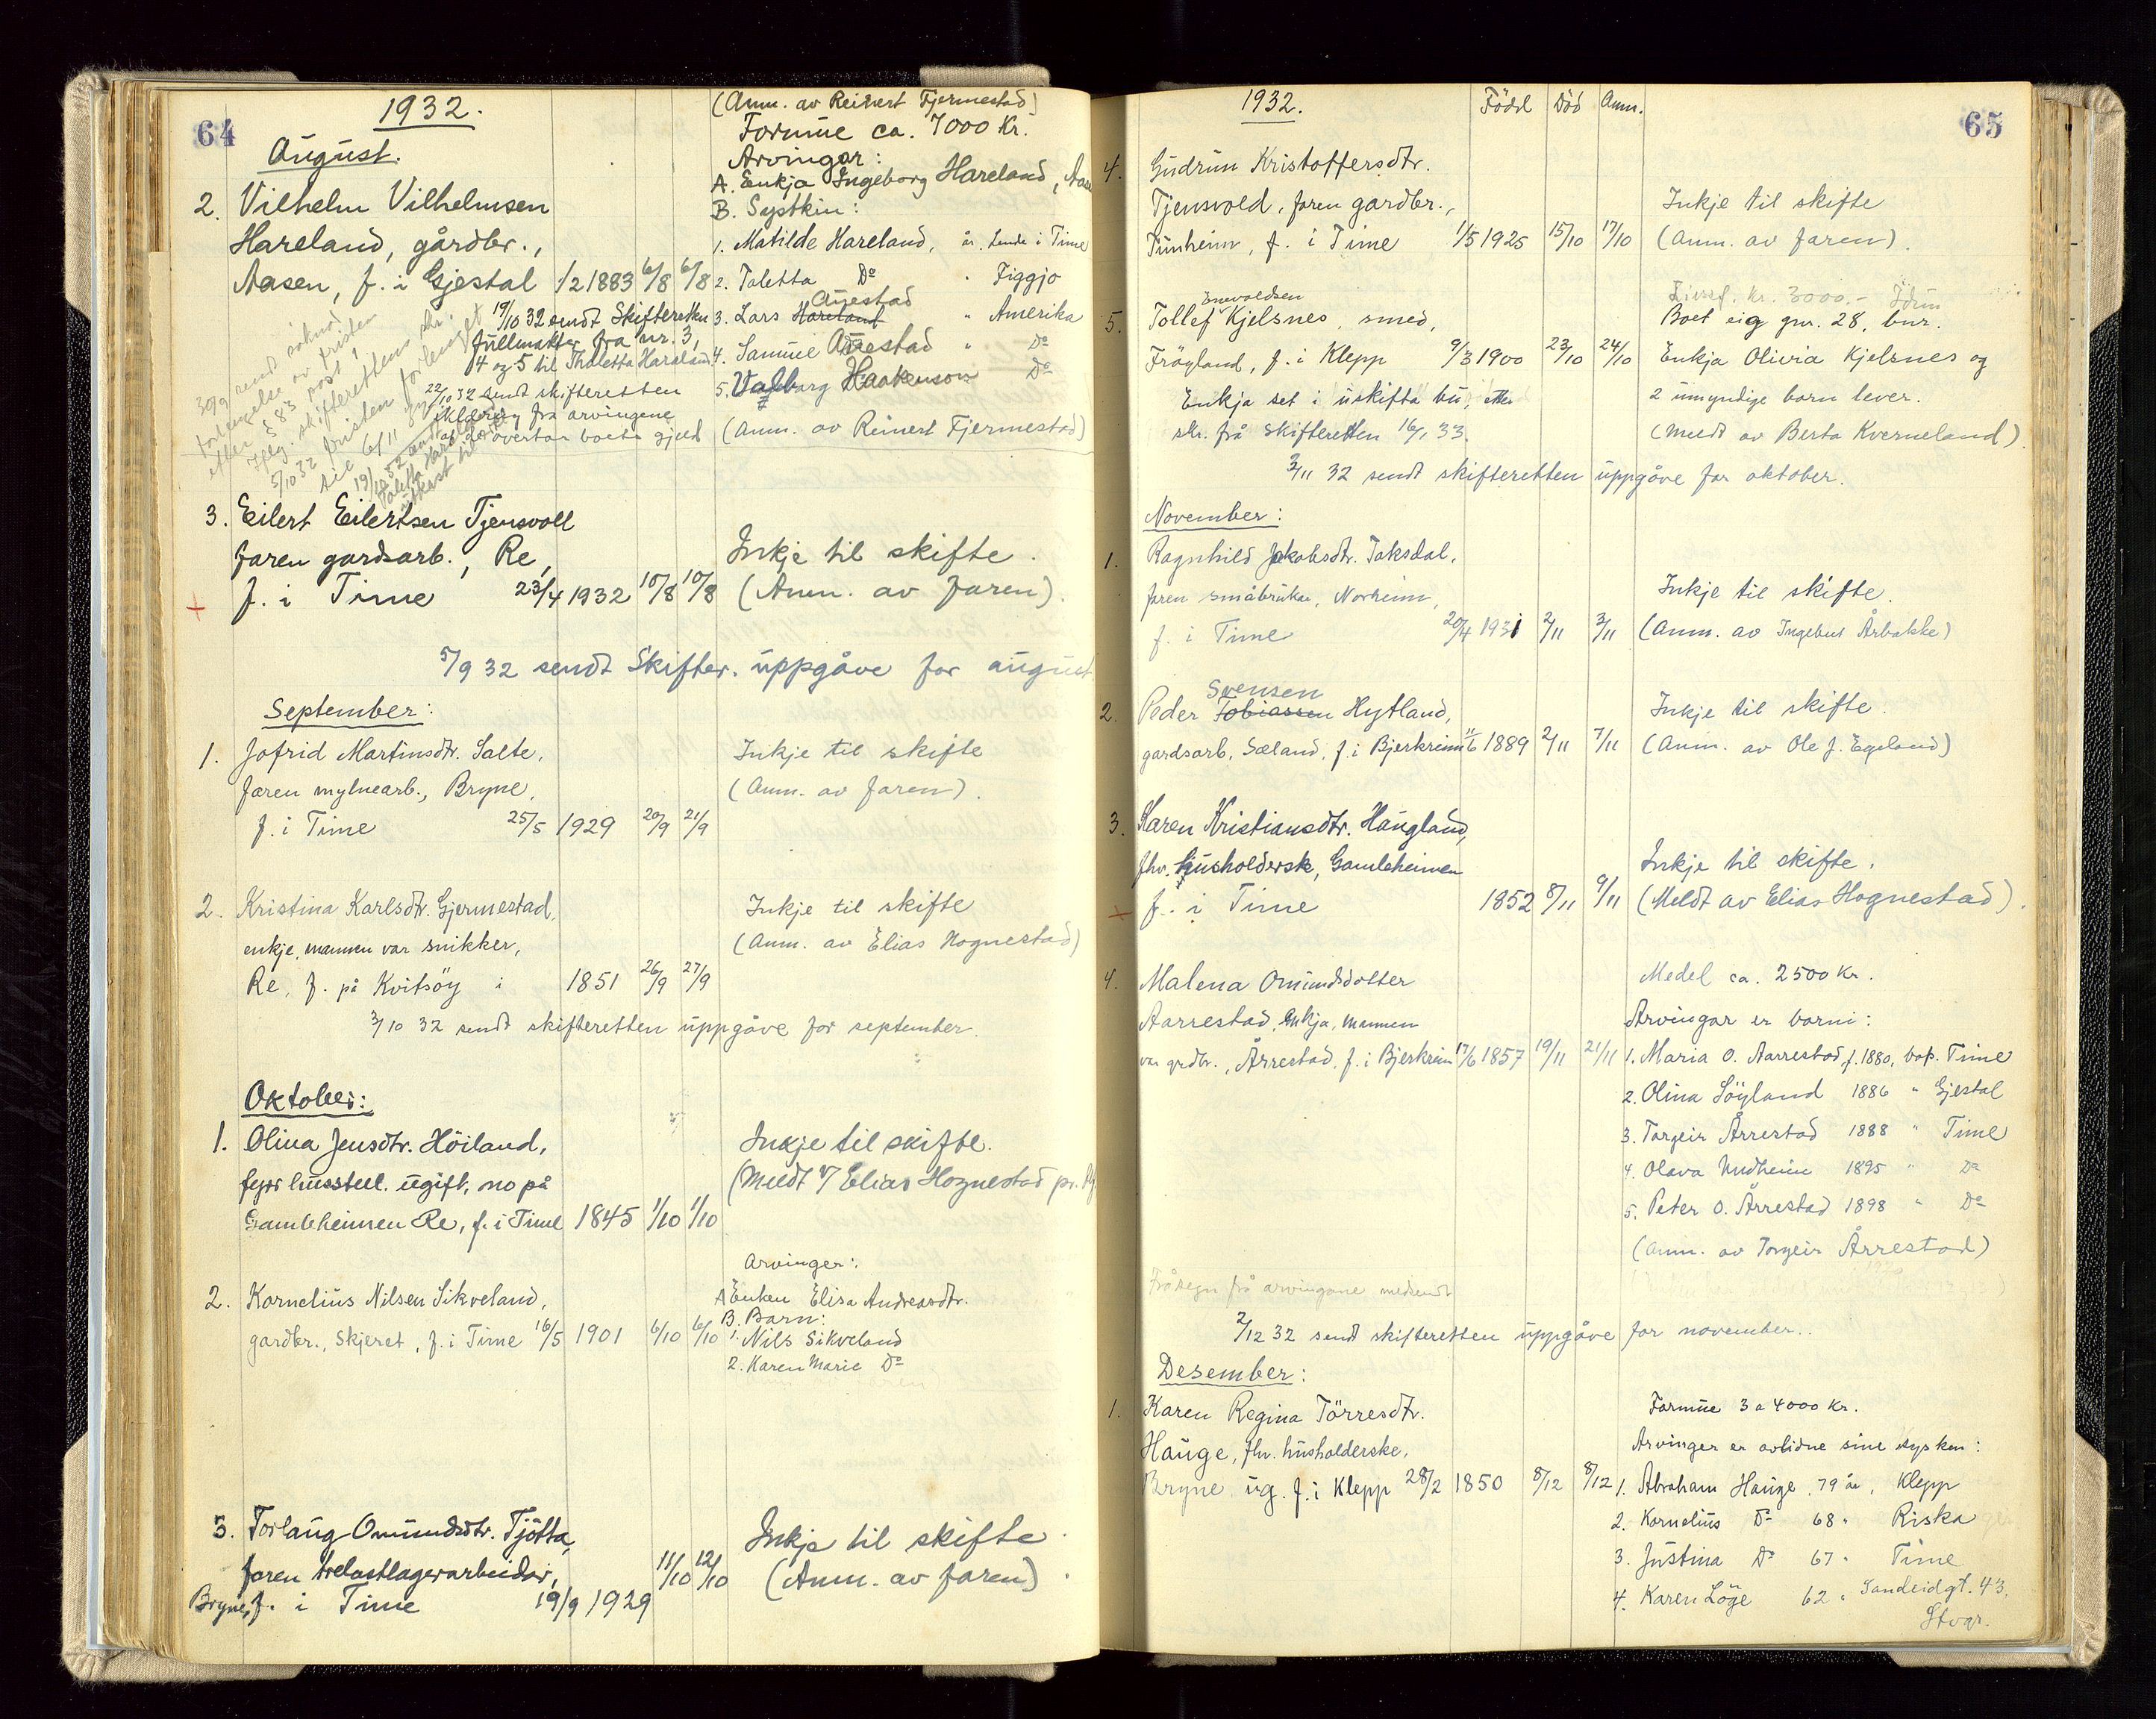 64
1932.
August.
2. Vilhelm Vilhelmsen
Hareland, gårdbr.,
Aasen, f. i Gjestal 1/2 1883 6/8 6/8
(Anm. av Reinert Fjermestad)
Formue ca. 7000 Kr.
Arvingar:
A. Enkja Ingeborg Hareland,
B. Systkin:
1. Matilde Hareland, år. Lende i Time
2. Taletta Do " Figgjo
Auestad
3. Lars Hareland " Amerika
4. Samuel Auestad " Do
5. Valborg Haakenson Do
(Anm. av Reinert Fjermestad)
19/10 32 sendt Skifteretten
fullmakter fra nr. 3,
4 og 5 til Thaletta Hareland
22/10 32 sendt skifteretten
erklæring fra arvingene
at de overtar boets gjeld
30/9 sendt söknad
forlengelse av fristen
etter § 83 post 1
Iflg. skifterettens skr.
5/10 32 fristen forlenget
til 6/11
3. Eilert Eilertsen Tjensvoll
faren gardsarb., Re,
f. i Time 23/4 1932 10/8 10/8
Inkje til skifte.
(Anm. av faren).
5/9 32 sendt Skifter. uppgåve for august
September:
1. Jofrid Martinsdtr. Salte,
faren mylnearb., Bryne,
f. i Time 25/5 1929 20/9 21/9
Inkje til skifte
(Anm. av faren).
2. Kristina Karlsdtr. Gjermestad,
enkje, mannen var snikker,
Re, f. på Kvitsöy i 1851 26/9 27/9
Inkje til skifte
(Anm. av Elias Hognestad)
3/10 32 sendt skifteretten uppgåve for september.
Oktober:
1. Olina Jensdtr. Höiland,
fyrr husstell. ugift, no på
Gamleheimen Re, f. i Time 1845 1/10 1/10
Inkje til skifte.
(Meldt v/ Elias Hognestad pr.
2. Kornelius Nilsen Sikveland,
gardbr., Skjeret, f. i Time 16/5 1901 6/10 6/10
Arvinger:
A Enken Elisa Andreasdtr.
B. Barn:
1. Nils Sikveland
2. Karen Marie Do
3. Torlaug Omundsdtr. Tjötta,
faren trelastlagerarbeider,
Bryne, f. i Time 19/9 1929 11/10 12/10
Inkje til skifte.
(Anm. av faren).
65
1932. Född Död Anm.
4. Gudrun Kristoffersdtr.
Tjensvold, faren gardbr.,
Tunheim, f. i Time 1/5 1925 15/10 17/10
Inkje til skifte
(Anm. av faren).
Livsf. kr. 3000.- Idun
Enevoldsen
5. Tollef Kjelsnes, smed,
Fröyland, f. i Klepp 9/3 1900 23/10 24/10
Enkja set i uskifta bu, etter
skr. frå Skifteretten 16/1 33.
Boet eig gnr. 28, bnr.
Enkja Olivia Kjelsnes og
2 umyndige born lever.
(Meldt av Berta Kverneland)
3/11 32 sendt skifteretten uppgåve for oktober.
November:
1. Ragnhild Jakobsdtr. Taksdal,
faren småbrukar, Norheim,
f. i Time 20/4 1931 2/11 3/11
Inkje til skifte.
(Anm. av Ingebret Årbakke)
Svensen
2. Peder Tobiassen Hytland,
gardsarb, Sæland, f. i Bjerkreim 11/6 1889 2/11 7/11
Inkje til skifte.
(Anm. av Ole J. Egeland)
3. Karen Kristiansdtr. Haugland,
fhv. husholderske, Gamleheimen
f. i Time 1852 8/11 9/11
Inkje til skifte.
(Meldt av Elias Hognestad).
4. Malena Omundsdotter
Aarrestad, Enkja, mannen
var grdbr., Årrestad, f. i Bjerkreim 17/6 1857 19/11 21/11
Medel ca. 2500 Kr.
Arvingar er borni:
1. Maria O. Aarrestad, f. 1880, bop. Time
2. Olina Söyland 1886 " Gjestal
3. Torgeir Årrestad 1888 " Time
4. Olava Undheim 1895 " Do
5. Peter O. Årrestad 1898 " Do
(Anm. av Torgeir Årrestad)
Fråsegn frå arvingane medsendt
2/12 32 sendt skifteretten uppgåve for november.
Desember:
1. Karen Regina Törresdtr.
Hauge, fhv. husholderske,
Bryne ug. f. i Klepp 28/2 1850 8/12 8/12
Formue 3 a 4000 Kr.
Arvinger er avlidne sine sysken:
1. Abraham Hauge, 79 år, Klepp
2. Kornelius Do 68 " Riska
3. Justina Do 67 " Time
4. Karen Löge 62 " Sandeidgt. 43,
Stvgr.